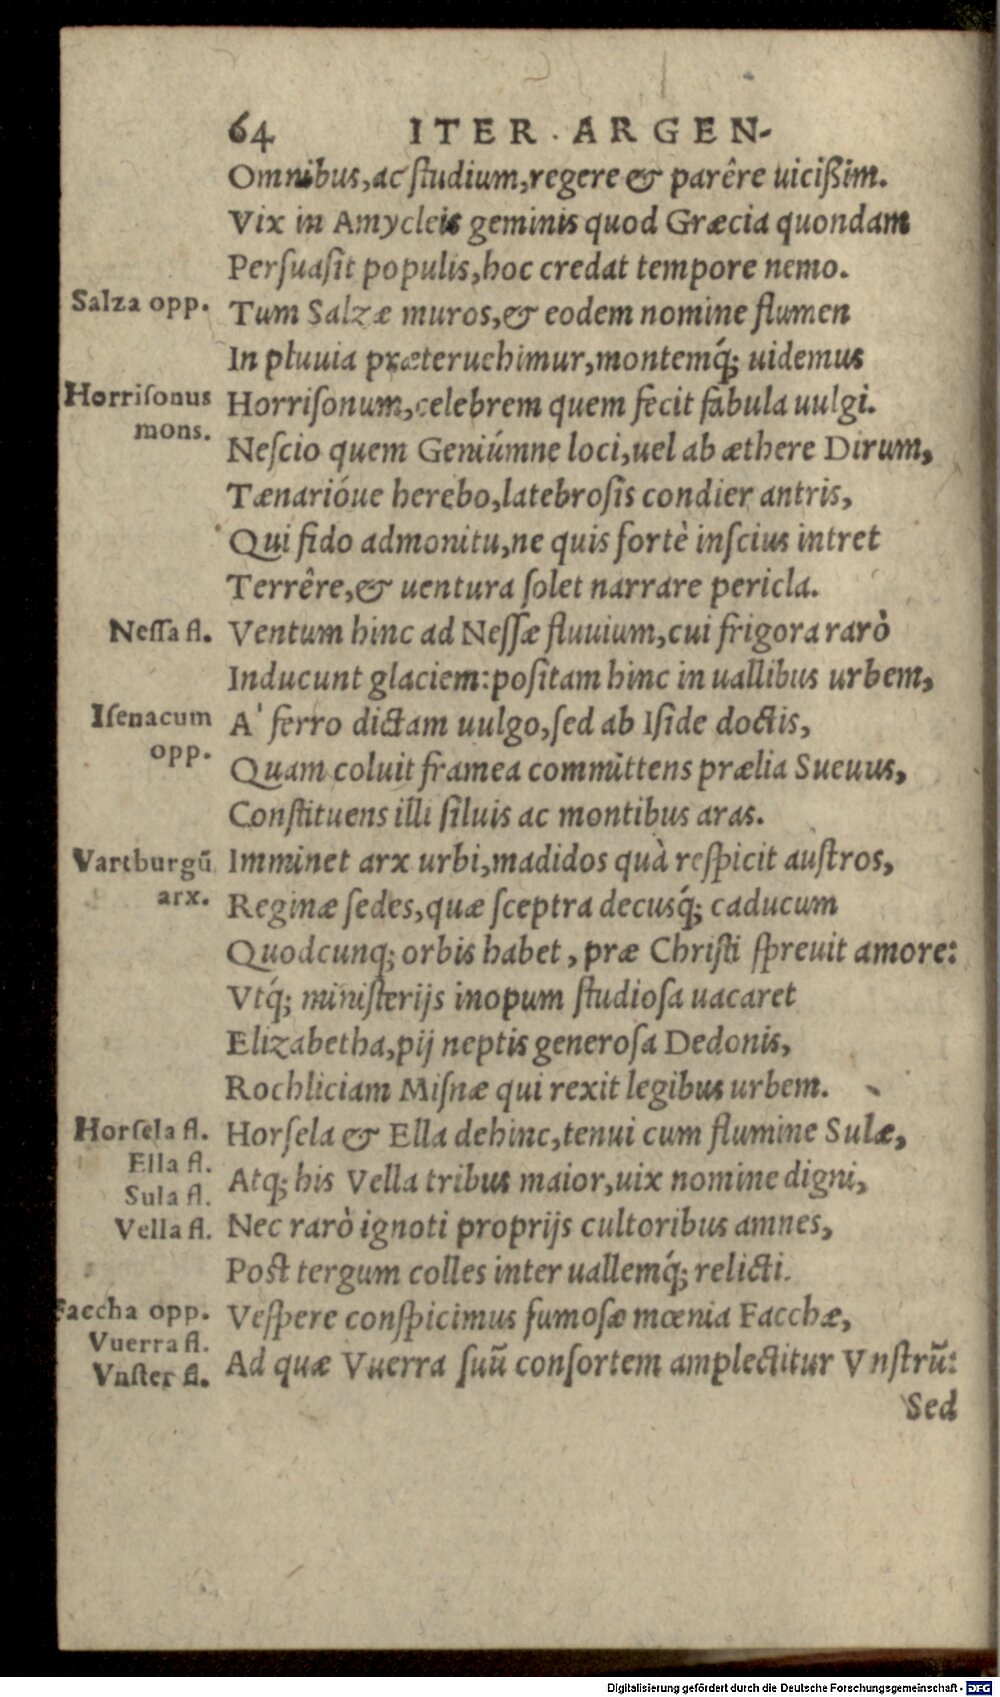 64 ITER ARGEN-
Omnibus, ac ſtudium, regere & parêre uicißim.
Vix in Amycleis geminis quod Græcia quondam
Perſuaſit populis, hoc credat tempore nemo.
Salza opp.
Tum Salzæ muros, & eodem nomine flumen
In pluuia præteruehimur, montemq́; uidemus
Horriſonus
mons.
Horriſonum, celebrem quem fecit fabula uulgi.
Neſcio quem Geniúmne loci, uel ab æthere Dirum,
Tænarióue herebo, latebroſis condier antris,
Qui fido admonitu, ne quis fortè inſcius intret
Terrêre, & uentura ſolet narrare pericla.
Neſſa fl.
Ventum hinc ad Neſſæ fluuium, cui frigora rarò
Inducunt glaciem: poſitam hinc in uallibus urbem,
Iſenacum
opp.
A' ferro dictam uulgo, ſed ab Iſide doctis,
Quam coluit framea committens prælia Sueuus,
Conſtituens illi ſiluis ac montibus aras.
Vartburgū
arx.
Imminet arx urbi, madidos quà reſpicit auſtros,
Reginæ ſedes, quæ ſceptra decusq́; caducum
Quodcunq; orbis habet, præ Chriſti ſpreuit amore:
Vtq́; miniſterijs inopum ſtudioſa uacaret
Elizabetha, pij neptis generoſa Dedonis,
Rochliciam Miſnæ qui rexit legibus urbem.
Horſela fl.
Ella fl.
Sula fl.
Vella fl.
Horſela & Ella dehinc, tenui cum flumine Sulæ,
Atq; his Vella tribus maior, uix nomine digni,
Nec rarò ignoti proprijs cultoribus amnes,
Poſt tergum colles inter uallemq́; relicti.
Facchа opp.
Vuerra fl.
Vnſter fl.
Veſpere conſpicimus fumoſæ mœnia Facchæ,
Ad quæ Vuerra ſuū conſortem amplectitur Vnſtrū:
Sed
Digitalisierung gefördert durch die Deutsche Forschungsgemeinschaft - DFG